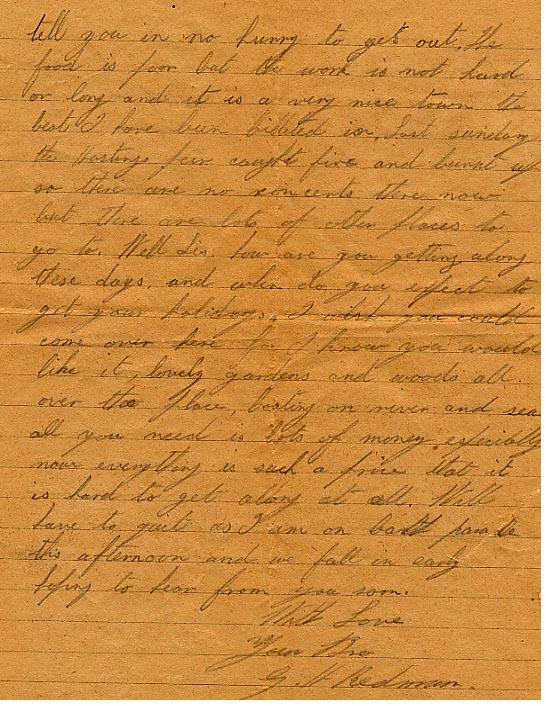 tell you in no hurry to get out. The
food is poor but the work is not hard
or long and it is a very nice town the
best I have been billeted in, Last sunday
the Hastings peir caught fire and burnt up
so there are no concerts there now
but there are lots of other places to
go to. Well Sis. how are you getting along
these days. and when do you expect to
get your holidays, I wish you could
come over here for I know you would
like it, lovely gardens and woods all.
over the place, boating on river and sea
all you need is lots of money especially
now everything is such a price that it
is hard to get along at all. Will
have to quit as I am on parade
this afternoon and we fall in early
hoping to hear from you soon.
With Love
Your Bro
G. Redman.